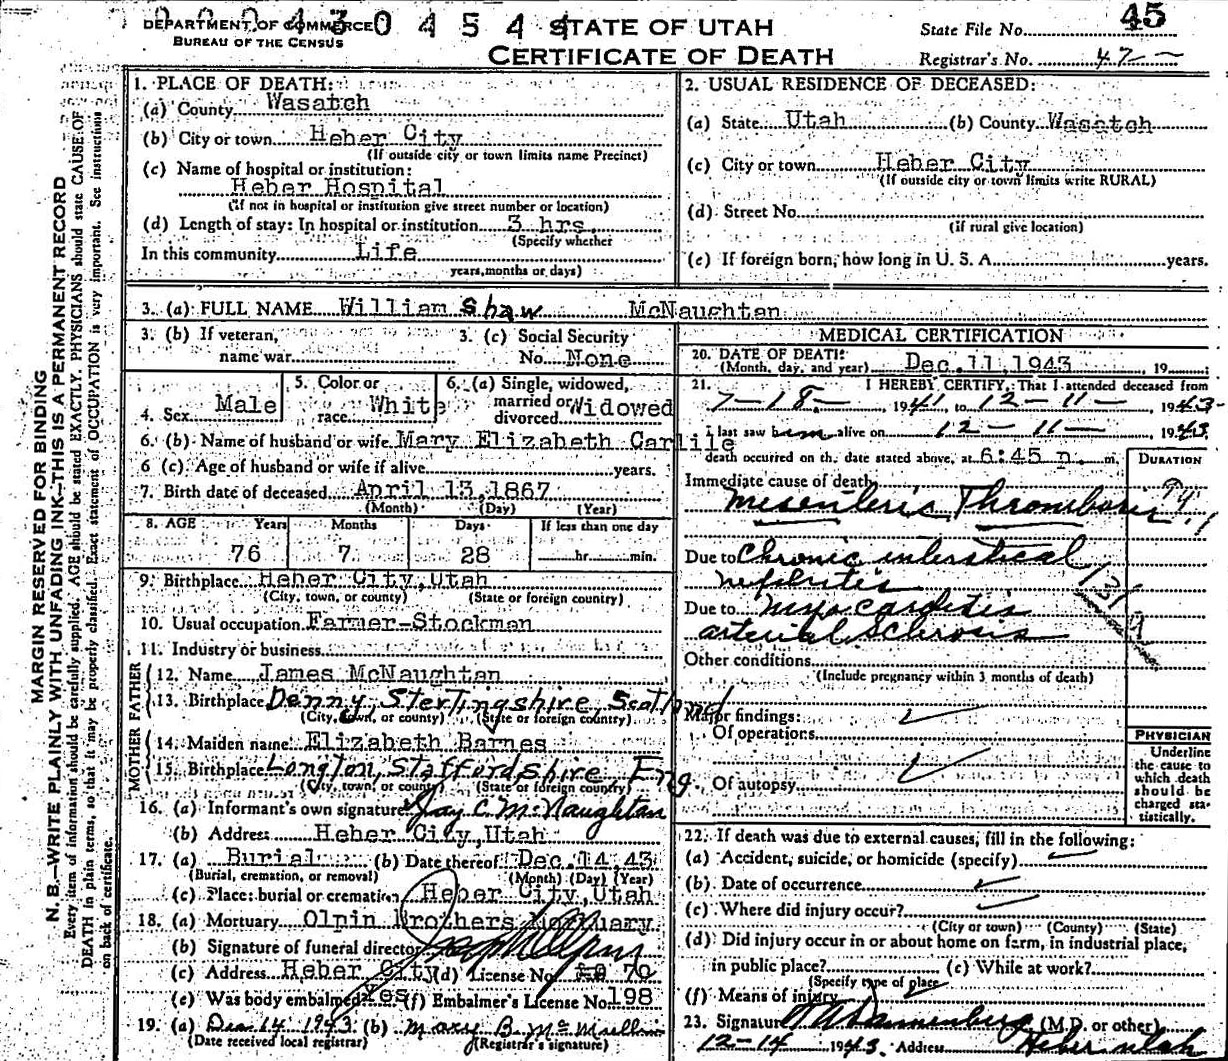 DEPARTMENT OF COMMERCE
BUREAU OF THE CENSUS
0 4 5 4 4
STATE OF UTAH
CERTIFICATE OF DEATH
State File No. 45
Registrar's No. 47
MARGIN RESERVED FOR BINDING
N. B.—WRITE PLAINLY WITH UNFADING INK—THIS IS A PERMANENT RECORD
Every item of information should be carefully supplied. AGE should be stated EXACTLY. PHYSICIANS should state CAUSE OF
DEATH in plain terms, so that it may be properly classified. Exact statement of OCCUPATION is very important. See instructions
on back of certificate.
1. PLACE OF DEATH:
(a) County Wasatch
(b) City or town Heber City
(If outside city or town limits name Precinct)
(c) Name of hospital or institution:
Heber Hospital
(If not in hospital or institution give street number or location)
(d) Length of stay: In hospital or institution 3 hrs.
(Specify whether
In this community Life
years, months or days)
2. USUAL RESIDENCE OF DECEASED:
(a) State Utah (b) County Wasatch
(c) City or town Heber City
(If outside city or town limits write RURAL)
(d) Street No.
(If rural give location)
(e) If foreign born, how long in U. S. A. years.
3. (a) FULL NAME William Shaw McNaughtan
3. (b) If veteran, name war
3. (c) Social Security No. None
4. Sex Male
5. Color or race White
6. (a) Single, widowed, married or divorced Widowed
6. (b) Name of husband or wife Mary Elizabeth Carlile
6 (c). Age of husband or wife if alive years.
7. Birth date of deceased April 13, 1867
(Month) (Day) (Year)
8. AGE Years Months Days If less than one day
76 7 28 hr. min.
9. Birthplace Heber City, Utah
(City, town, or county) (State or foreign country)
10. Usual occupation Farmer-Stockman
11. Industry or business
FATHER
12. Name James McNaughtan
13. Birthplace Denny, Sterlingshire, Scotland
(City, town, or county) (State or foreign country)
MOTHER
14. Maiden name Elizabeth Barnes
15. Birthplace Longton, Staffordshire, Eng.
(City, town, or county) (State or foreign country)
16. (a) Informant's own signature Jay C. McNaughtan
(b) Address Heber City, Utah
17. (a) Burial (b) Date thereof Dec. 14 43
(Burial, cremation, or removal) (Month) (Day) (Year)
(c) Place: burial or cremation Heber City, Utah
18. (a) Mortuary Olpin Brothers Mortuary
(b) Signature of funeral director
(c) Address Heber City (d) License No. 70
(e) Was body embalmed Yes (f) Embalmer's License No. 198
19. (a) Dec 14 1943 (b) Mary B. McMullin
(Date received local registrar) (Registrar's signature)
MEDICAL CERTIFICATION
20. DATE OF DEATH: Dec. 11, 1943, 19
(Month, day, and year)
21. I HEREBY CERTIFY, That I attended deceased from
7-18-, 1941, to 12-11-, 1943-
I last saw him alive on 12-11-, 1943
death occurred on the date stated above, at 6:45 p. m.
DURATION
Immediate cause of death
Mesenteric Thrombosis
Due to Chronic interstical
nephritis
Due to myocarditis
arterial sclerosis
Other conditions
(Include pregnancy within 3 months of death)
Major findings:
Of operations
Of autopsy
PHYSICIAN
Underline
the cause to
which death
should be
charged sta-
tistically.
22. If death was due to external causes, fill in the following:
(a) Accident, suicide, or homicide (specify)
(b) Date of occurrence
(c) Where did injury occur?
(City or town) (County) (State)
(d) Did injury occur in or about home on farm, in industrial place,
in public place? (e) While at work?
(Specify type of place
(f) Means of injury
23. Signature (M.D. or other)
12-14 1943. Address Heber Utah